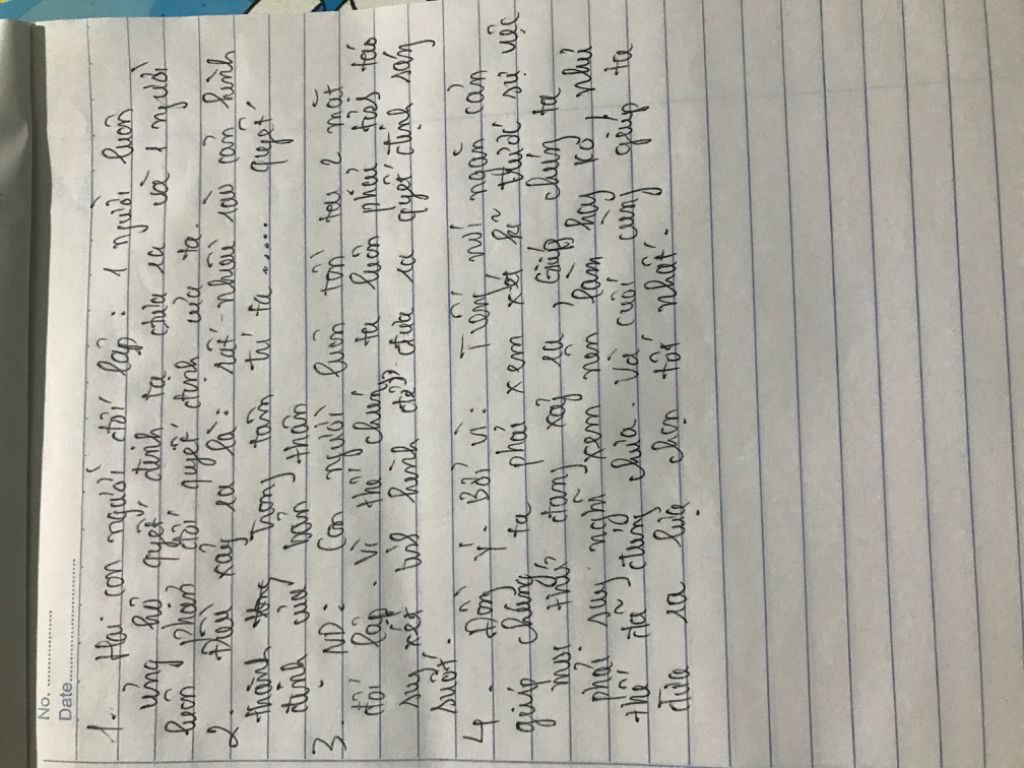 No. ...............
Date.......................
1. Hai con người đối lập : 1 người luôn
ủng hộ quyết định ta đưa ra và 1 người
luôn phản đối quyết định của ta.
2. Điều xảy ra là : rất nhiều rào cản hình
thành trong tâm trí ta ..... quyết
định của bản thân
3. ND : Con người luôn tồn tại 2 mặt
đối lập. Vì thế chúng ta luôn phải tỉnh táo
suy xét để đưa ra quyết định sáng
suốt.
4. Đồng ý. Bởi vì : Tiếng nói ngăn cản
giúp chúng ta phải xem xét kĩ trước sự việc
mọi thứ đang xảy ra, Giúp chúng ta
phải suy nghĩ xem nên làm hay ko, như
thế đã đúng chưa. Và cuối cùng giúp ta
đưa ra lựa chọn tốt nhất.